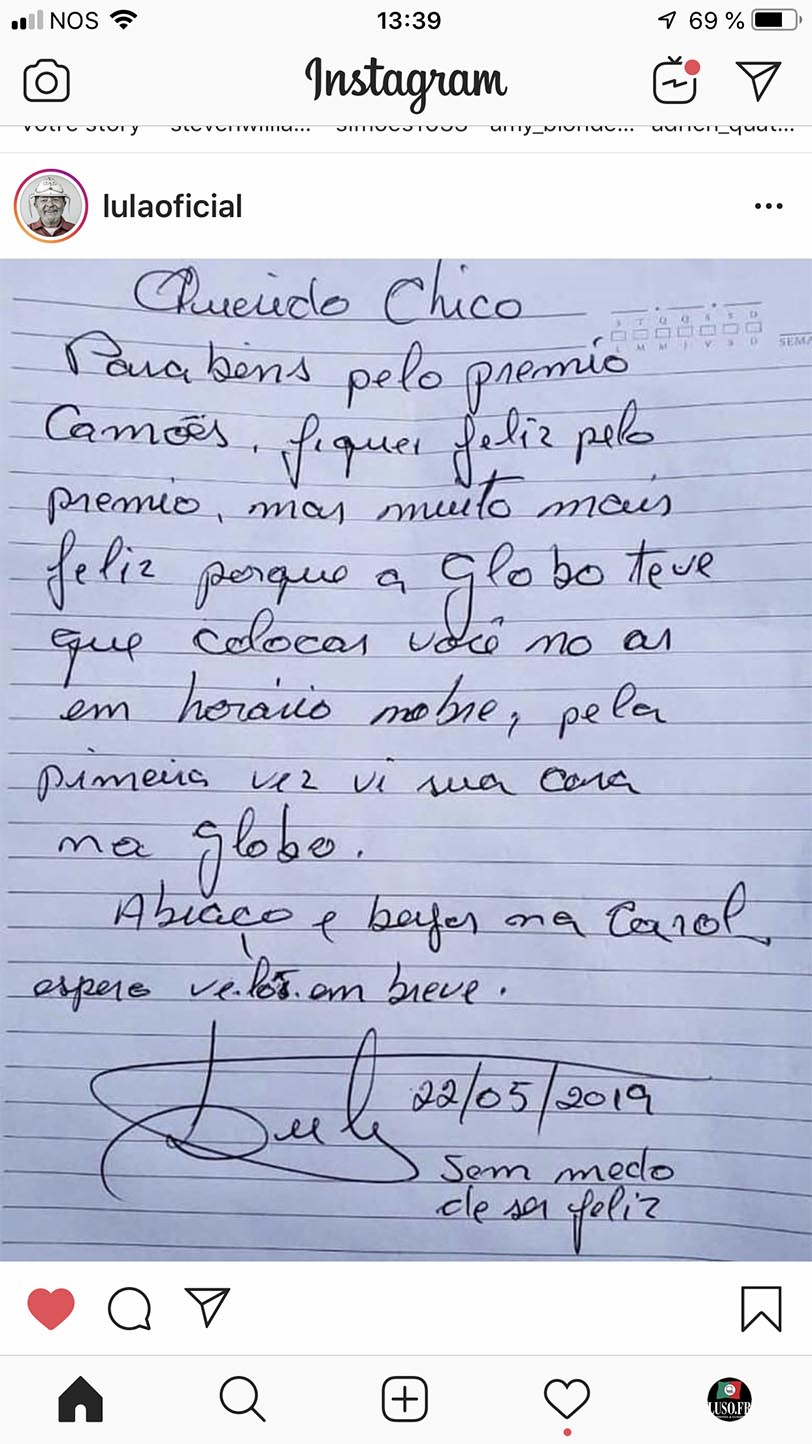 NOS 13:39 69 %
Instagram
votre story stevenwillia... simoes1033 amy_blonde... adrien_quat...
lulaoficial
Querido Chico
S T Q Q S S D
L M M J V S D
SEMA
Parabéns pelo premio
Camões, fiquei feliz pelo
premio, mas muito mais
feliz porque a Globo teve
que colocar você no ar
em horário nobre, pela
primeira vez vi sua cara
na globo.
Abraço e beijos na Carol,
espero ve-los em breve.
Lula 22/05/2019
Sem medo
de ser feliz
LUSO.FR